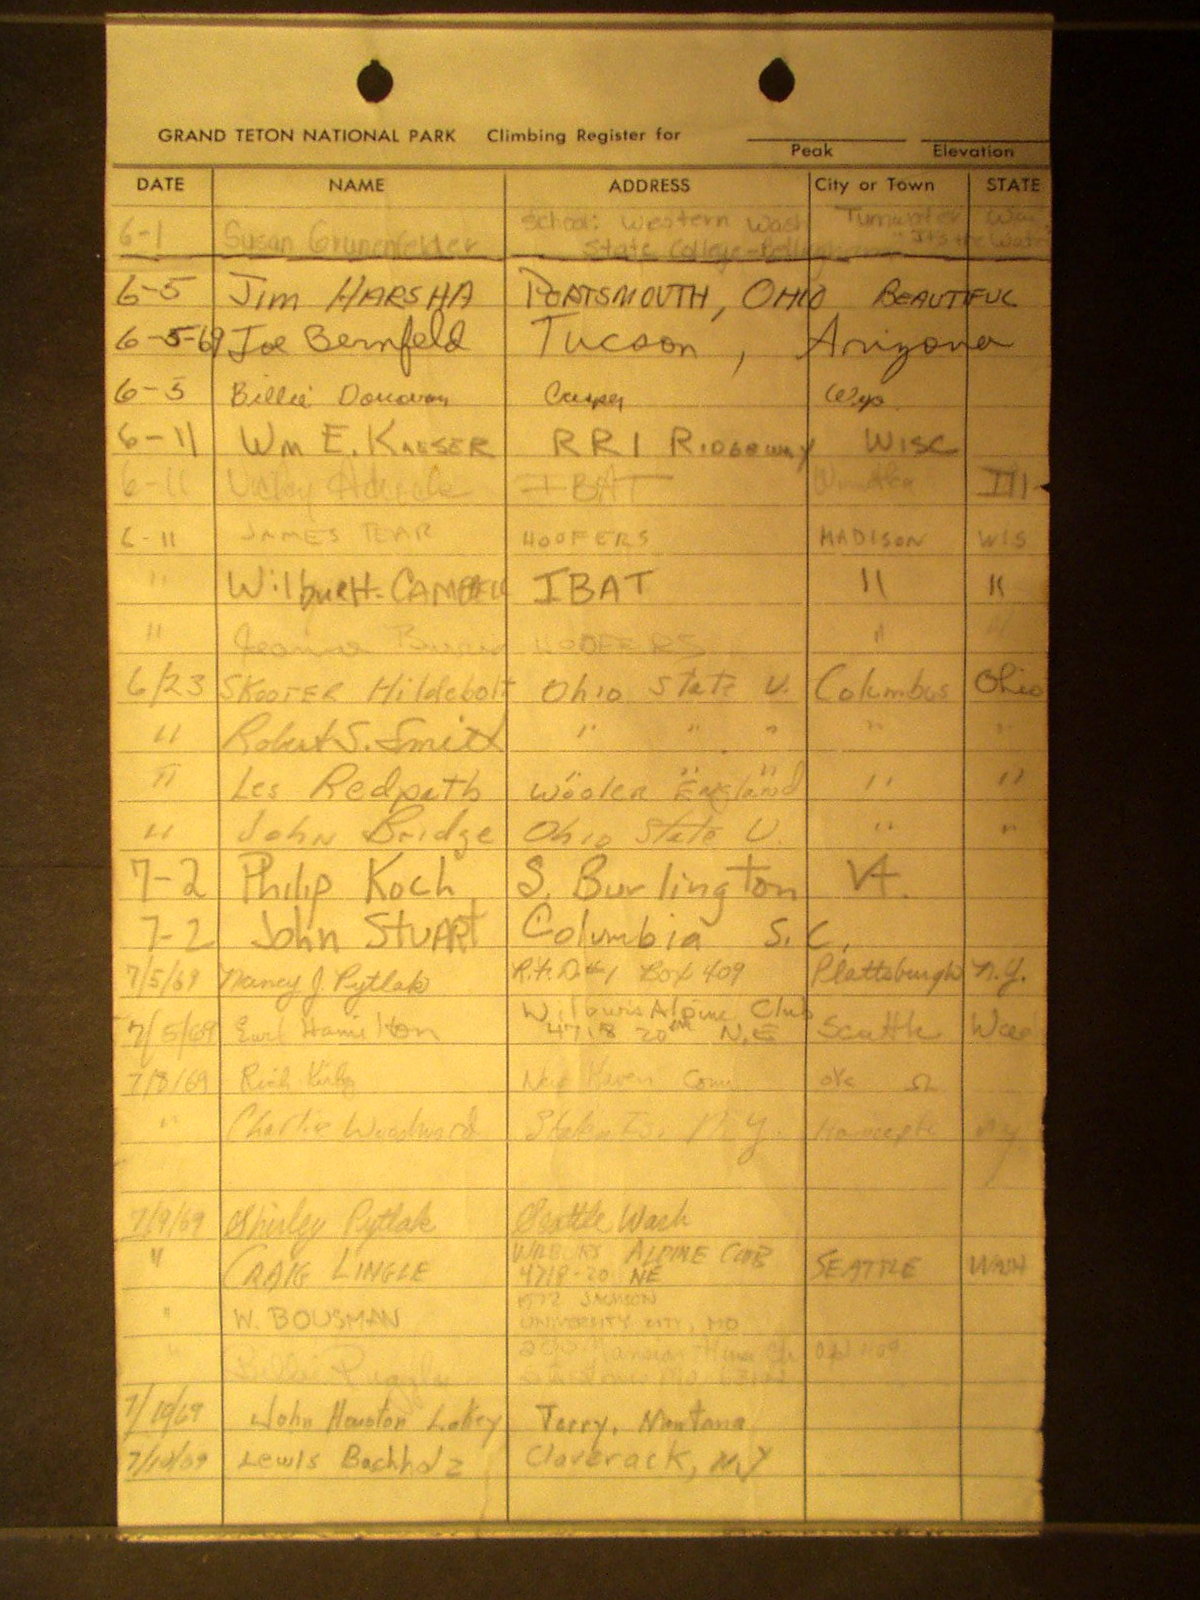 GRAND TETON NATIONAL PARK Climbing Register for
Peak Elevation
DATE NAME ADDRESS City or Town STATE
6-1 Susan School: Western Wash
State College-
6-5 Jim HARSHA PORTSMOUTH, OHIO BEAUTIFUL
6-5-69 Joe Bernfeld Tucson, Arizona
6-5 Billie Donovan Casper Wyo.
6-11 Wm E. KAESER RR1 RIDGEWAY WISC
6-11 IBAT Ill
6-11 JAMES TEAR HOOFERS MADISON WIS
" Wilbur H. CAMPBELL IBAT " "
" Jeanne HOOFERS " "
6/23 SKOOTER Hildebolt Ohio State U. Columbus Ohio
" Robert S. Smith " " " " "
" Les Redpath Wooler England " "
" John Bridge Ohio State U. " "
7-2 Philip Koch S. Burlington Vt.
7-2 John STUART Columbia S.C.
7/5/69 Nancy J. Pytlak R.F.D.#1 Box 409 Plattsburgh N.Y.
7/5/69 Earl Hamilton Wilburs Alpine Club
4718 20th N.E Seattle
7/8/69 Rich New Haven Conn
" Charlie Woodward Staten Is. N.Y.
7/9/69 Shirley Pytlak Seattle Wash
" CRAIG LINGLE WILBURS ALPINE CLUB
4718-20 NE SEATTLE WASH
" W. BOUSMAN JACKSON
UNIVERSITY CITY, MO
7/10/69 John Houston Terry, Montana
7/10/69 Lewis Claverack, NY